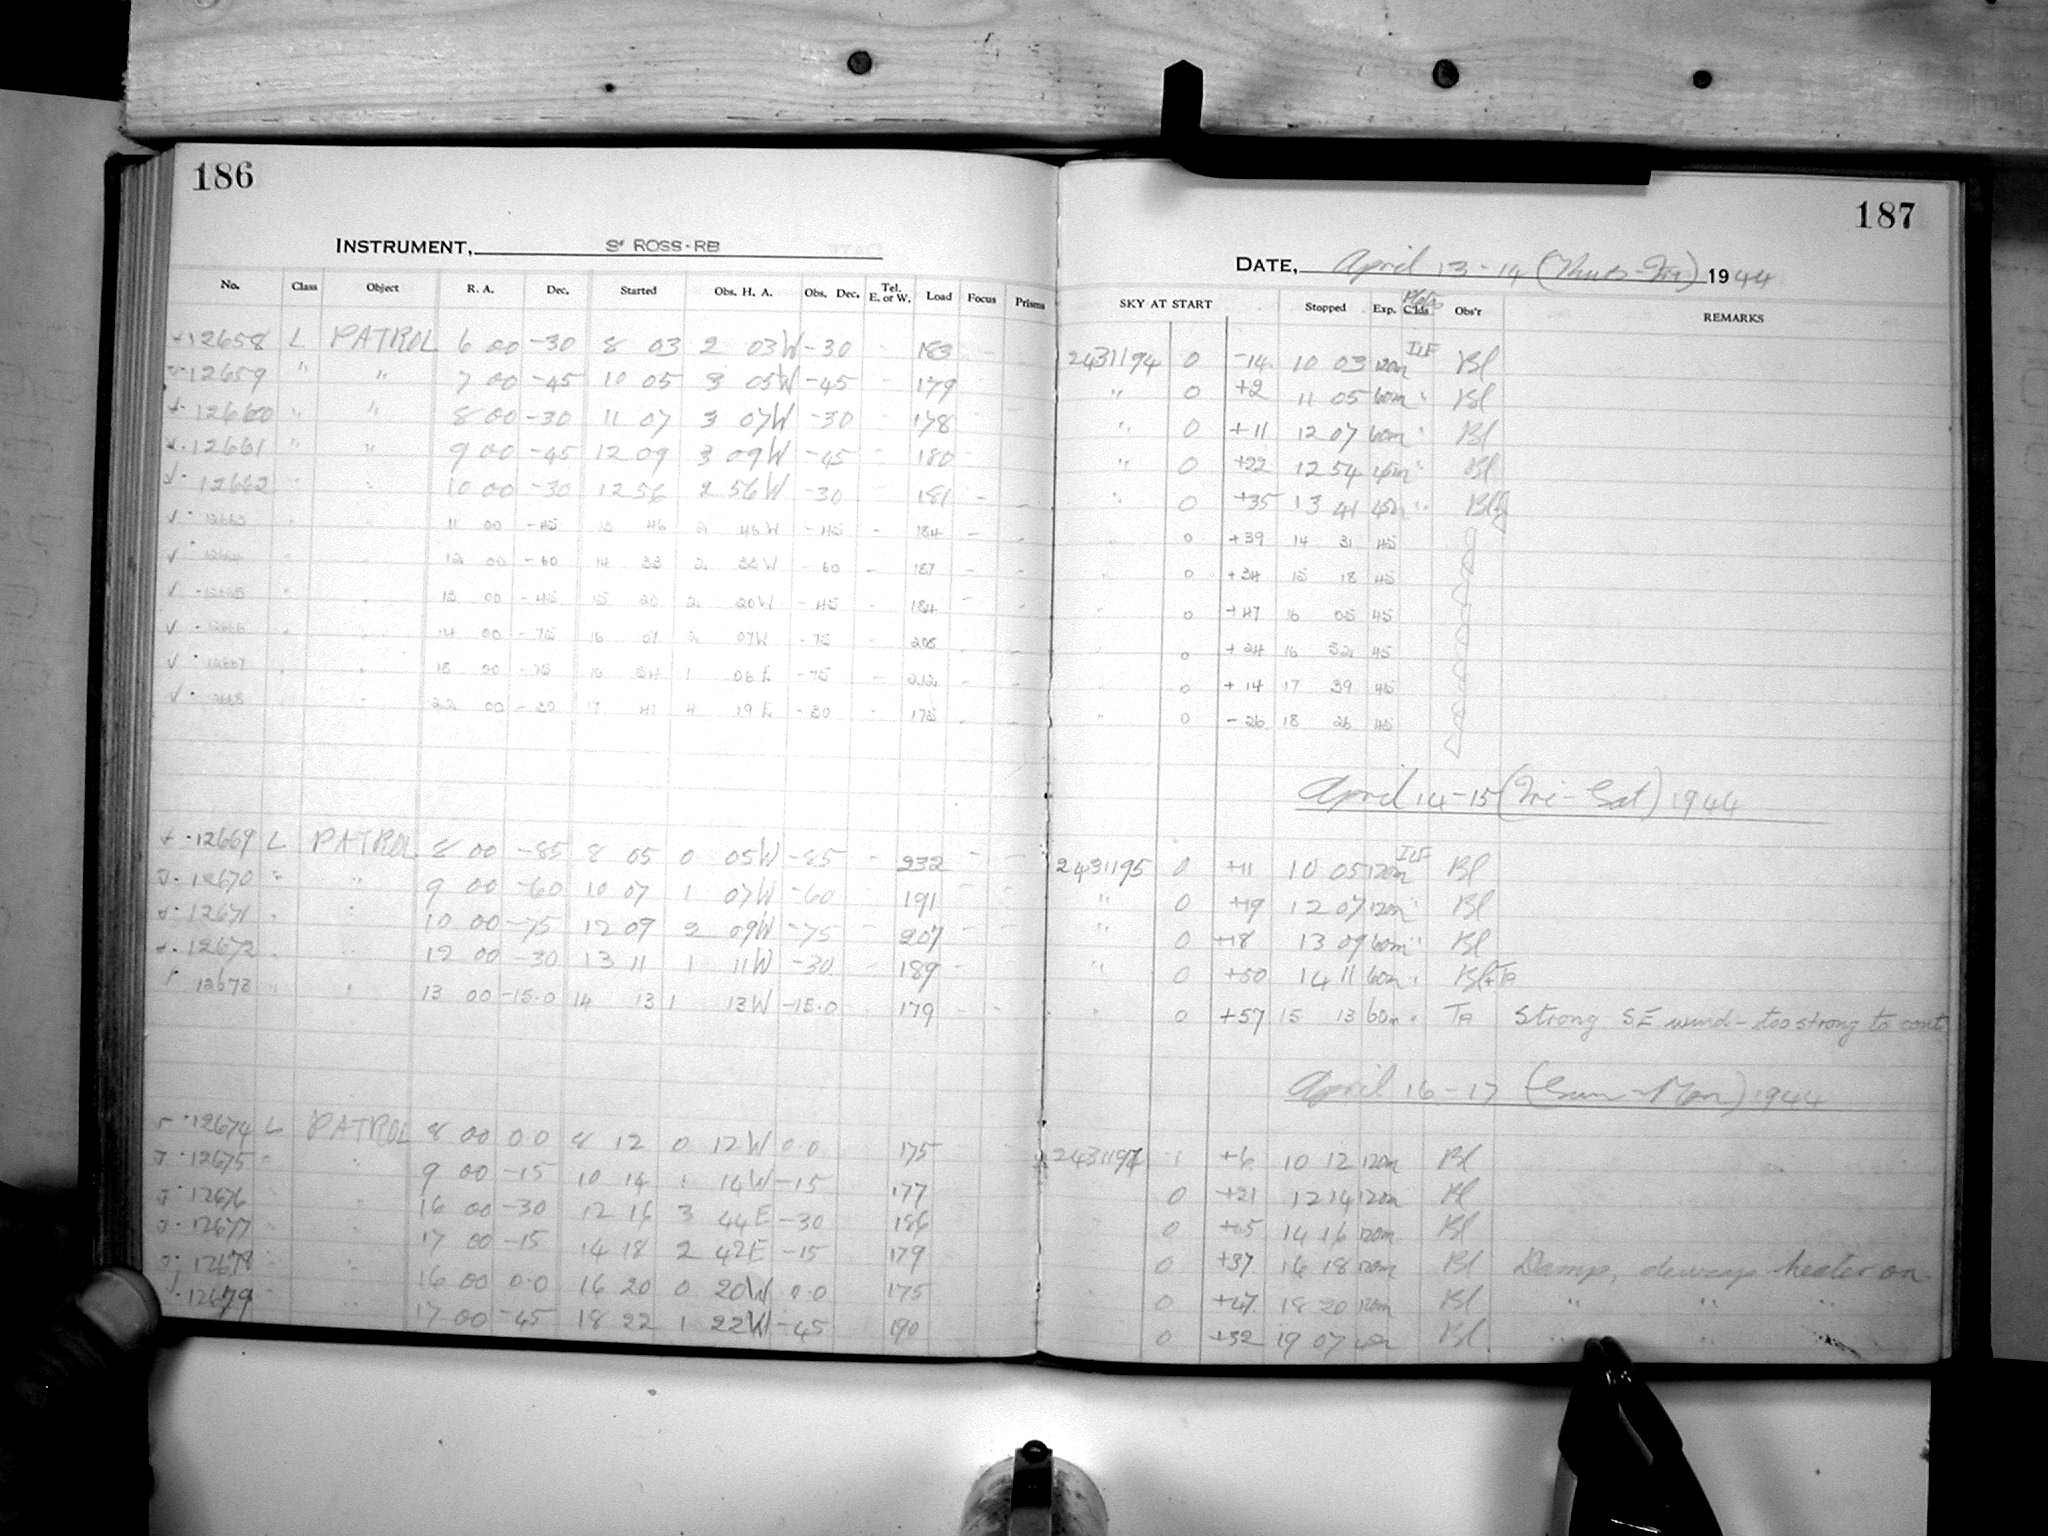 186
INSTRUMENT, ROSS-RB
No. Class Object R. A. Dec. Started Obs. H. A. Obs. Dec. Tel. E. or W. Load Focus Prisms
12658 L PATROL 6 00 -30 8 03 2 03W -30 - 183
12659 " " 7 00 -45 10 05 3 05W -45 - 179
12660 " " 8 00 -30 11 07 3 07W -30 - 178
12661 " " 9 00 -45 12 09 3 09W -45 - 180
12662 " " 10 00 -30 12 56 2 56W -30 - 181
12663 " " 11 00 -45 13 46 2 46W -45 - 184
12664 " " 12 00 -60 14 33 2 33W -60 - 187
12665 " " 13 00 -45 15 20 2 20W -45 - 184
12666 " " 14 00 -75 16 07 2 07W -75 - 208
12667 " " 18 00 -75 16 54 1 06E -75 - 212
12668 " " 22 00 -30 17 41 4 19E -30 - 175
12669 L PATROL 8 00 -85 8 05 0 05W -85 - 232
12670 " " 9 00 -60 10 07 1 07W -60 - 191
12671 " " 10 00 -75 12 09 2 09W -75 - 207
12672 " " 12 00 -30 13 11 1 11W -30 - 189
12673 " " 13 00 -15.0 14 13 1 13W -15.0 179
12674 L PATROL 8 00 0.0 8 12 0 12W 0.0 175
12675 " " 9 00 -15 10 14 1 14W -15 177
12676 " " 16 00 -30 12 16 3 44E -30 186
12677 " " 17 00 -15 14 18 2 42E -15 179
12678 " " 16 00 0.0 16 20 0 20W 0.0 175
12679 " " 17 00 -45 18 22 1 22W -45 190
187
DATE, April 13-14 (Thurs-Fri) 1944
SKY AT START Stopped Exp. Clds Obs'r REMARKS
2431194 0 -14 10 03 120m ILF Bl
" 0 +2 11 05 60m " Bl
" 0 +11 12 07 60m " Bl
" 0 +22 12 54 45m " Bl
" 0 +35 13 41 45m " Bl
" 0 +39 14 31 45
" 0 +34 15 18 45
" 0 +47 16 05 45
0 +24 16 52 45
" 0 +14 17 39 45
" 0 -26 18 26 45
April 14-15 (Fri-Sat) 1944
2431195 0 +11 10 05 120m ILF Bl
" 0 +19 12 07 120m " Bl
" 0 +18 13 09 60m " Bl
" 0 +50 14 11 60m " Bl+TA
" 0 +57 15 13 60m " TA Strong SE wind - too strong to cont
April 16-17 (Sun-Mon) 1944
2431197 1 +6 10 12 120m Bl
0 +21 12 14 120m Bl
0 14 16 120m Bl
0 +37 16 18 120m Bl Damp, dewcap heater on
0 +47 18 20 120m Bl " " "
0 +32 19 07 Bl " " "